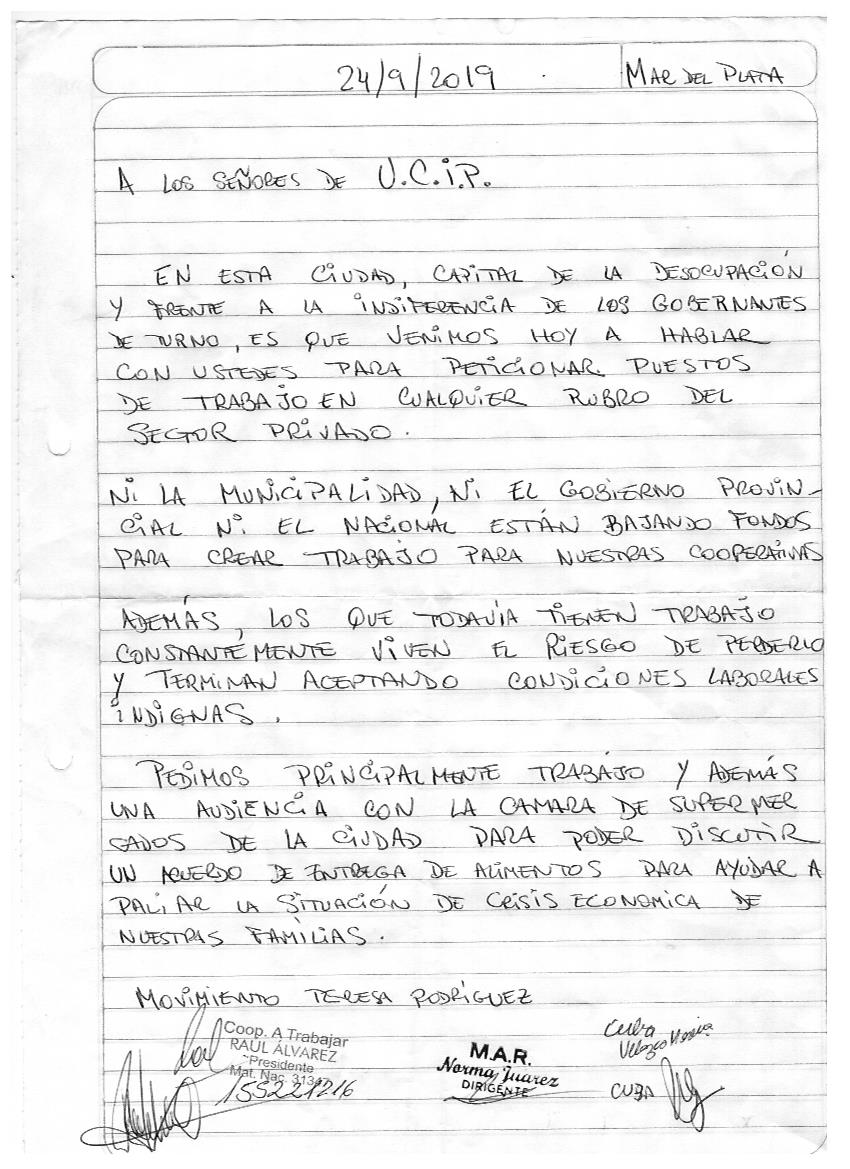 24/9/2019
MAR DEL PLATA
A LOS SEÑORES DE U.C.I.P.
EN ESTA CIUDAD, CAPITAL DE LA DESOCUPACIÓN
Y FRENTE A LA INDIFERENCIA DE LOS GOBERNANTES
DE TURNO, ES QUE VENIMOS HOY A HABLAR
CON USTEDES PARA PETICIONAR PUESTOS
DE TRABAJO EN CUALQUIER RUBRO DEL
SECTOR PRIVADO.
NI LA MUNICIPALIDAD, NI EL GOBIERNO PROVIN-
CIAL NI EL NACIONAL ESTÁN BAJANDO FONDOS
PARA CREAR TRABAJO PARA NUESTRAS COOPERATIVAS
ADEMÁS, LOS QUE TODAVIA TIENEN TRABAJO
CONSTANTEMENTE VIVEN EL RIESGO DE PERDERLO
Y TERMINAN ACEPTANDO CONDICIONES LABORALES
INDIGNAS.
PEDIMOS PRINCIPALMENTE TRABAJO Y ADEMÁS
UNA AUDIENCIA CON LA CAMARA DE SUPERMER
CADOS DE LA CIUDAD PARA PODER DISCUTIR
UN ACUERDO DE ENTREGA DE ALIMENTOS PARA AYUDAR A
PALIAR LA SITUACIÓN DE CRISIS ECONOMICA DE
NUESTRAS FAMILIAS.
MOVIMIENTO TERESA RODRÍGUEZ
Coop. A Trabajar
RAUL ÁLVAREZ
Presidente
Mat. Nac. 
155221216
M.A.R.
Norma Juarez
DIRIGENTE
Cuba
CUBA